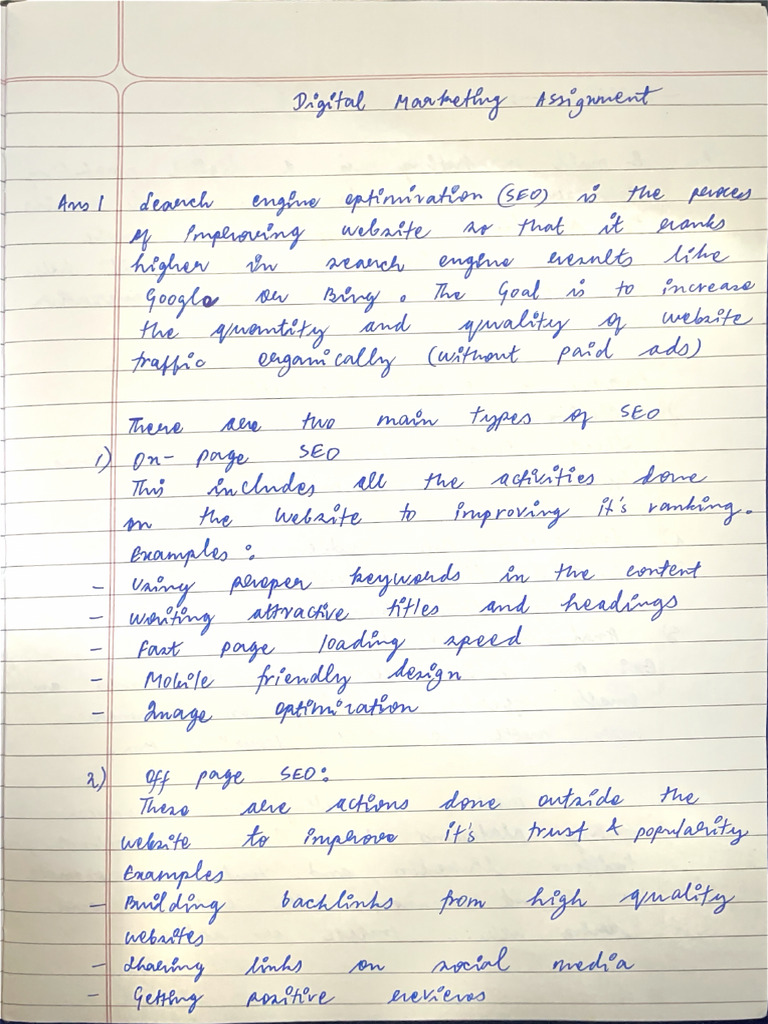 Digital Marketing Assignment
Ans 1 Search engine optimization (SEO) is the process
of Improving website so that it ranks
higher in search engine results like
Google or Bing. The Goal is to increase
the quantity and quality of website
traffic organically (without paid ads)
There are two main types of SEO
1) On- page SEO
This includes all the activities done
on the website to improving it's ranking.
Examples :
- Using proper keywords in the content
- writing attractive titles and headings
- Fast page loading speed
- Mobile friendly design
- Image optimization
2) Off page SEO:
These are actions done outside the
website to improve it's trust & popularity
Examples
- Building backlinks from high quality
websites
- Sharing links on social media
- Getting positive reviews